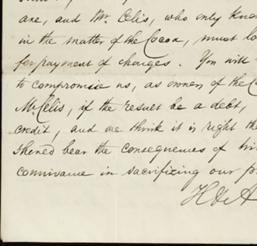 are, and Mr. Celis, who only know
in the matter of the Cocoa, must lo
for payment of charges. You will
to compromise us, as owners of the C
Mr. Celis, if the result be a debt,
credit, and we think it is right tha
should bear the consequences of his
connivance in sacrificing our pr
H & A